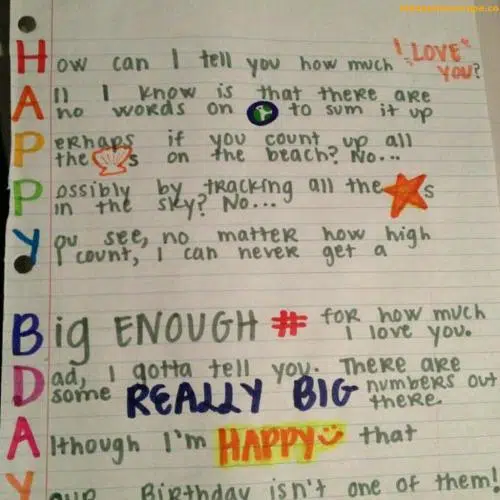 How can I tell you how much "I LOVE YOU"?
All I know is that there are
no words on to sum it up
Perhaps if you count up all
the s on the beach? No...
Possibly by tracking all the s
in the sky? No...
You see, no matter how high
I count, I can never get a
Big ENOUGH # for how much
I love you.
Dad, I gotta tell you. There are
some REALLY BIG numbers out
there.
Although I'm HAPPY that
your Birthday isn't one of them!